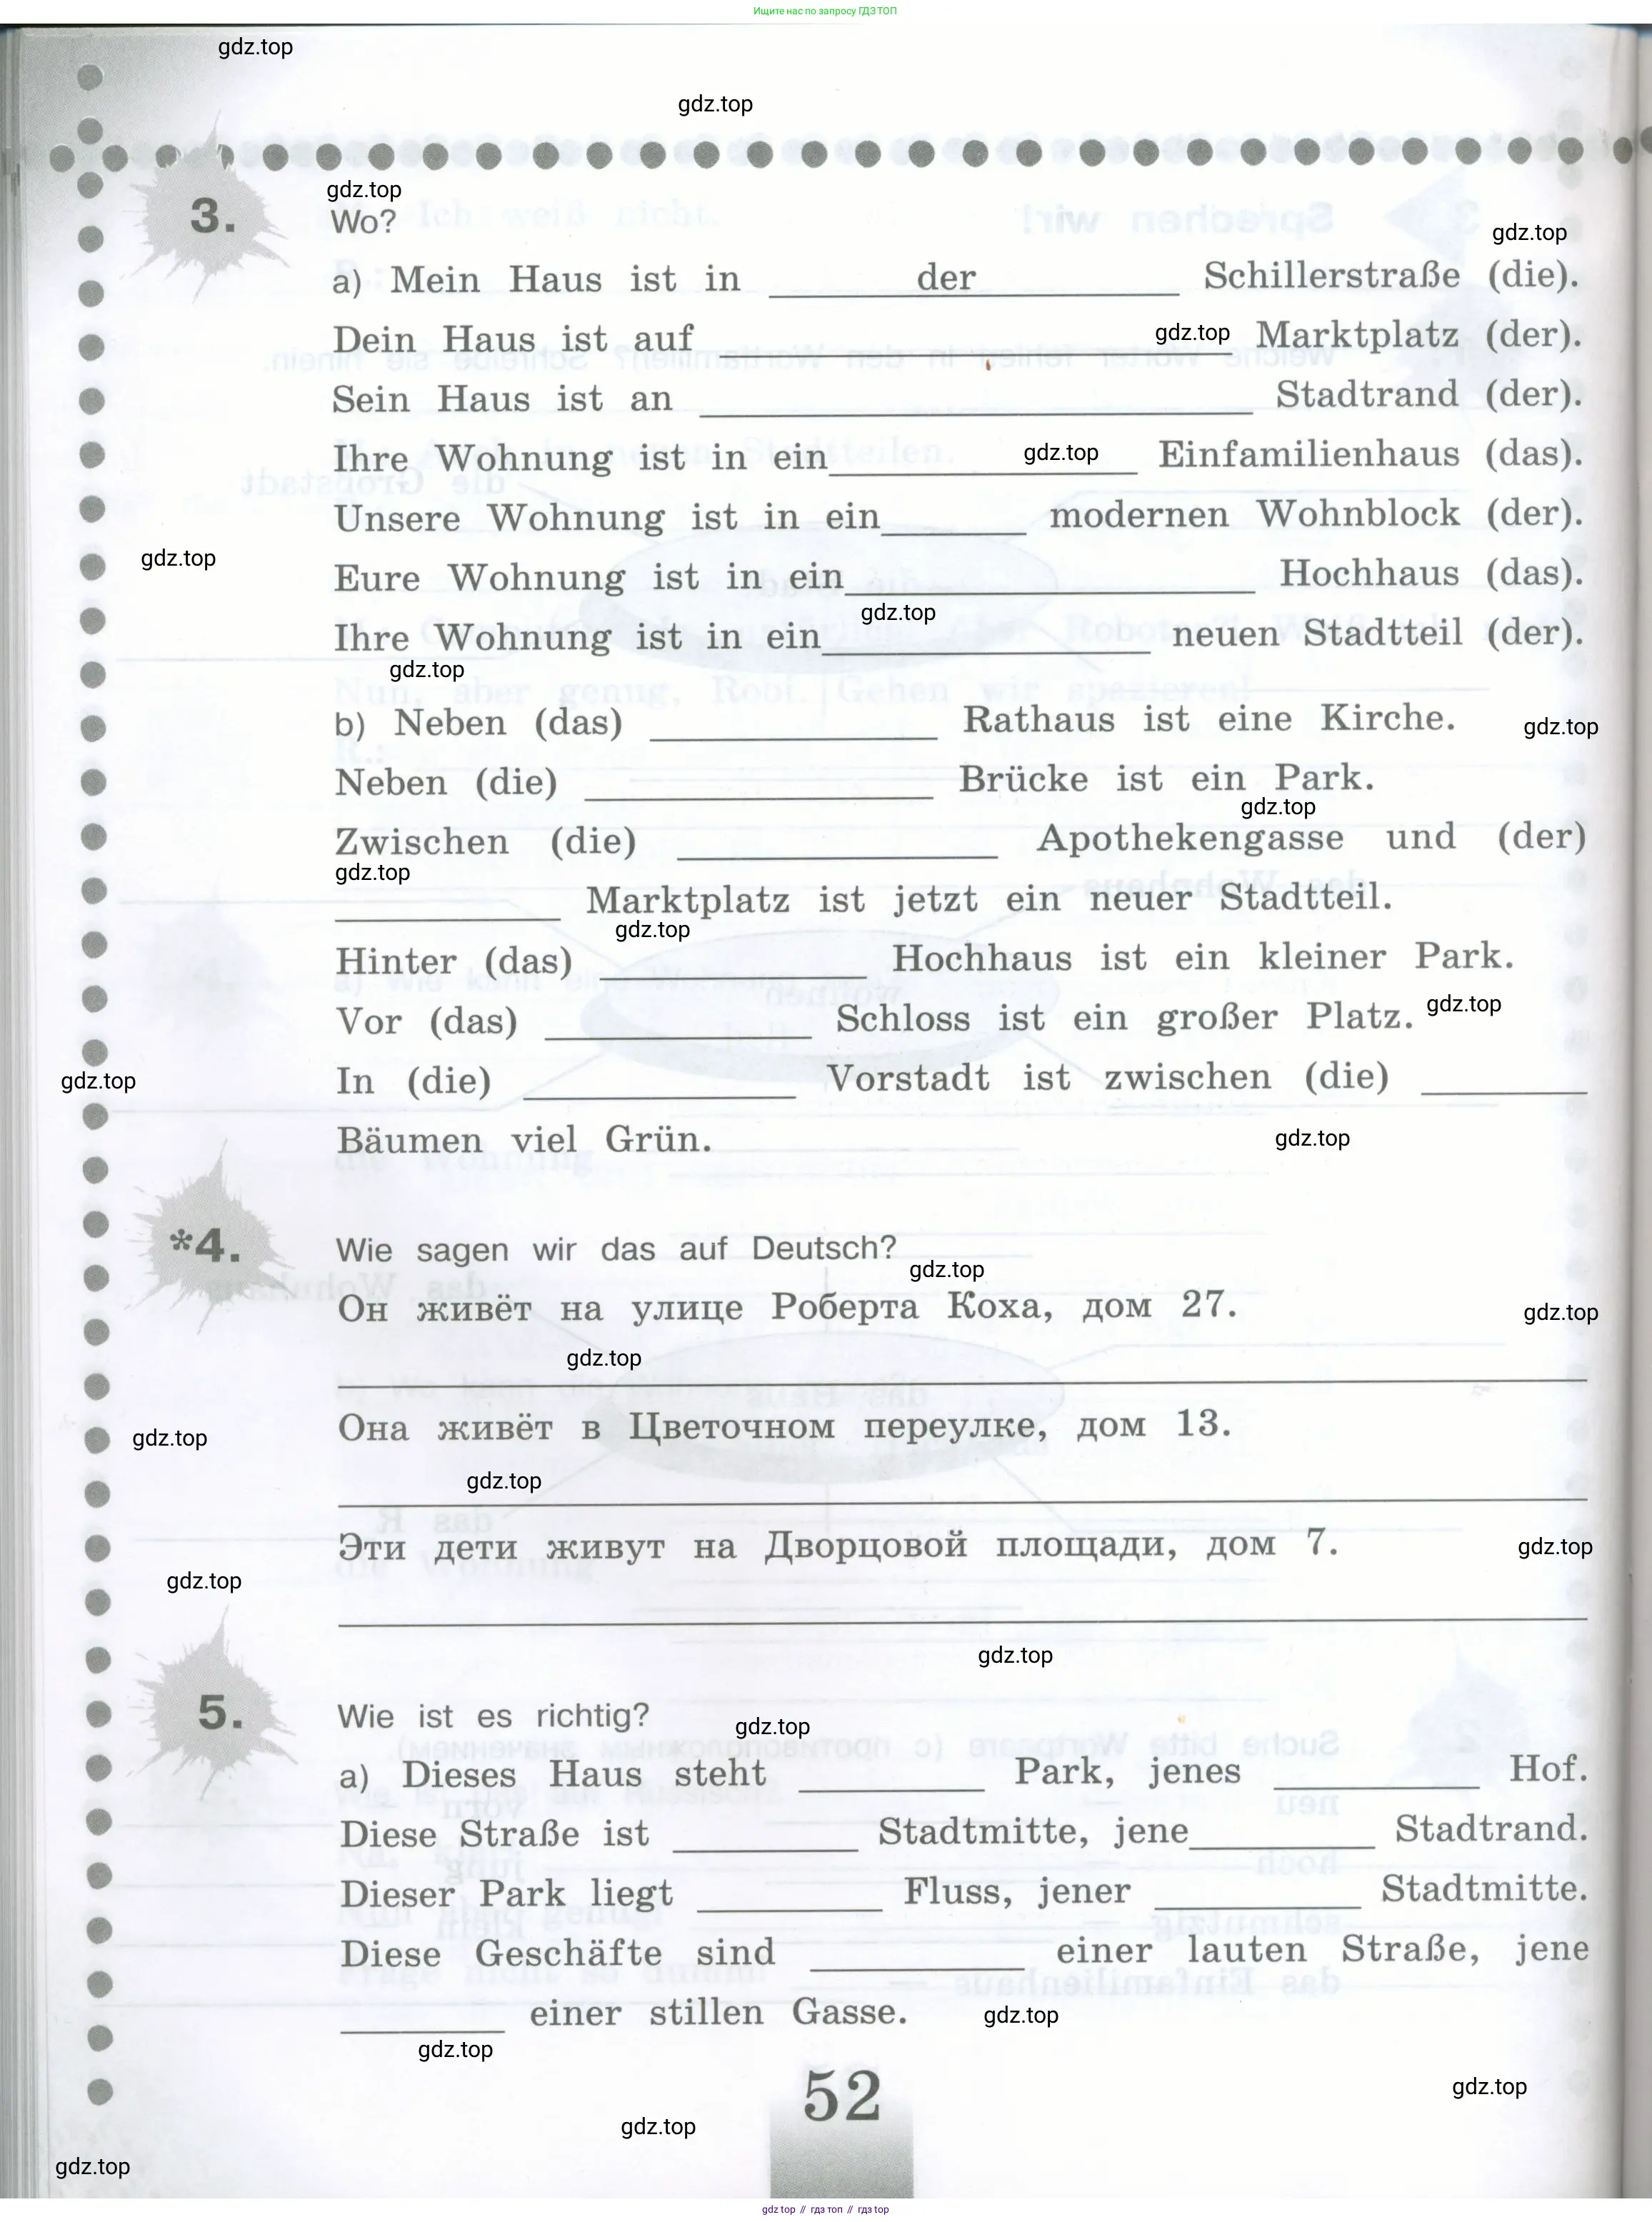 Ищите нас по запросу ГДЗ ТОП
gdz.top
gdz.top
gdz.top
3. Wo?
gdz.top
a) Mein Haus ist in der Schillerstraße (die).
Dein Haus ist auf gdz.top Marktplatz (der).
Sein Haus ist an Stadtrand (der).
Ihre Wohnung ist in ein gdz.top Einfamilienhaus (das).
Unsere Wohnung ist in ein modernen Wohnblock (der).
gdz.top
Eure Wohnung ist in ein Hochhaus (das).
gdz.top
Ihre Wohnung ist in ein neuen Stadtteil (der).
gdz.top
b) Neben (das) Rathaus ist eine Kirche. gdz.top
Neben (die) Brücke ist ein Park.
gdz.top
Zwischen (die) Apothekengasse und (der)
gdz.top
Marktplatz ist jetzt ein neuer Stadtteil.
gdz.top
Hinter (das) Hochhaus ist ein kleiner Park.
gdz.top
Vor (das) Schloss ist ein großer Platz.
gdz.top
In (die) Vorstadt ist zwischen (die)
Bäumen viel Grün. gdz.top
*4. Wie sagen wir das auf Deutsch?
gdz.top
Он живёт на улице Роберта Коха, дом 27. gdz.top
gdz.top
Она живёт в Цветочном переулке, дом 13.
gdz.top
gdz.top
Эти дети живут на Дворцовой площади, дом 7. gdz.top
gdz.top
gdz.top
5. Wie ist es richtig?
gdz.top
a) Dieses Haus steht Park, jenes Hof.
Diese Straße ist Stadtmitte, jene Stadtrand.
Dieser Park liegt Fluss, jener Stadtmitte.
Diese Geschäfte sind einer lauten Straße, jene
einer stillen Gasse. gdz.top
gdz.top
52
gdz.top
gdz.top
gdz.top
gdz top // гдз топ // гдз top